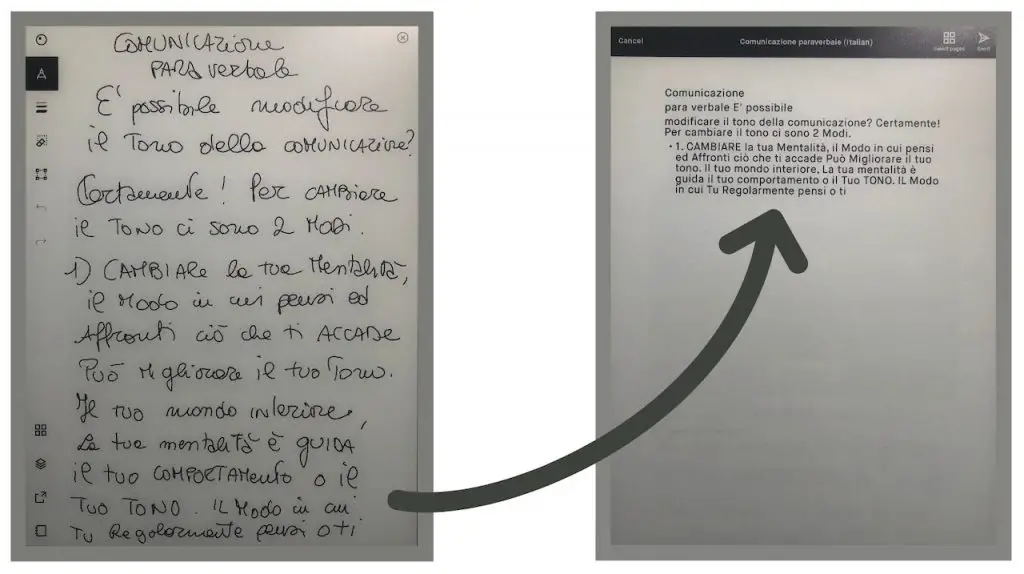 COMUNICAZIONE
PARA verbale
E' possibile modificare
il Tono della COMUNICAZIONE?
Certamente! Per CAMBiare
il TONO ci sono 2 Modi.
1) CAMBIARe la tua Mentalità,
il Modo in cui pensi ed
Affronti ciò che ti ACCADE
Può Migliorare il tuo Tono.
Il tuo mondo interiore,
La tua mentalità è GUIDA
il tuo COMPORTAMento o il
Tuo TONO. IL Modo in cui
Tu Regolarmente pensi o ti
Cancel
Comunicazione paraverbale (Italian)
Insert pages
Send
Comunicazione
para verbale E' possibile
modificare il tono della comunicazione? Certamente!
Per cambiare il tono ci sono 2 Modi.
• 1. CAMBIARE la tua Mentalità, il Modo in cui pensi
ed Affronti ciò che ti accade Può Migliorare il tuo
tono. Il tuo mondo interiore. La tua mentalità è
guida il tuo comportamento o il Tuo TONO. IL Modo
in cui Tu Regolarmente pensi o ti